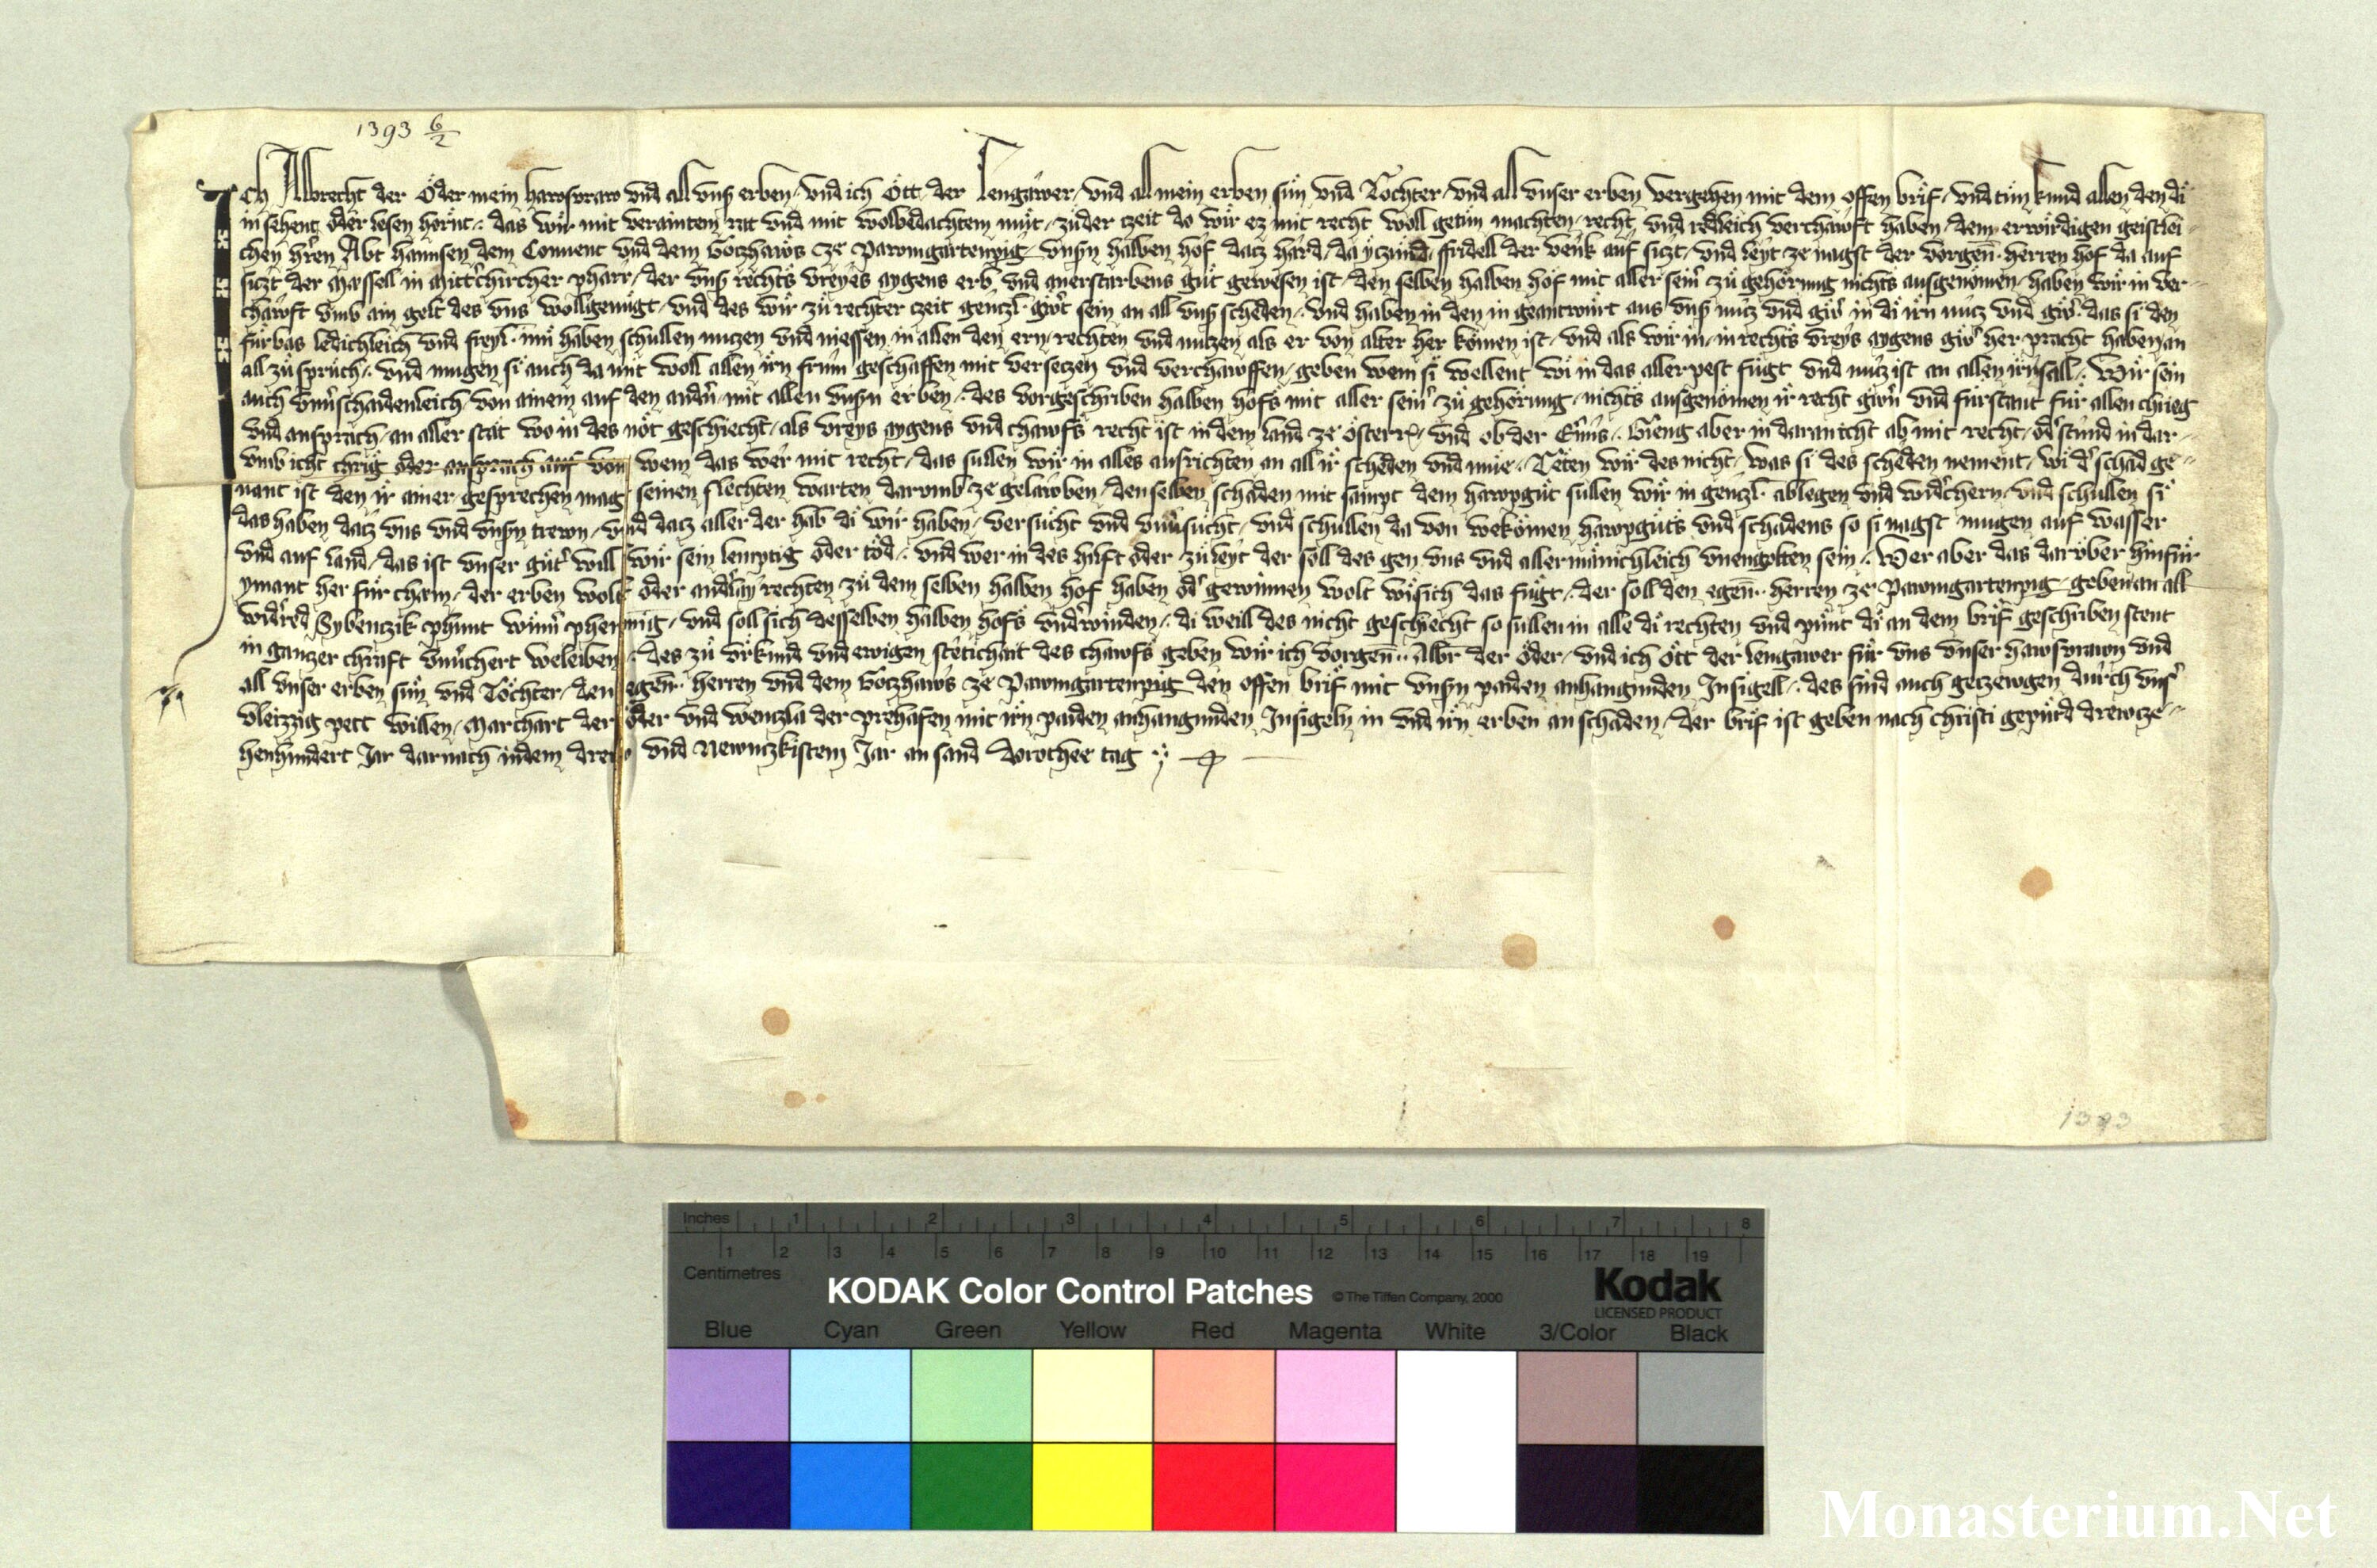 1393 6/2
Ich Albrecht der Öder mein hawsvraw vnd all vnsˀ erben / vnd ich Ött der Lengawer / vnd all mein erben sün vnd Töchter / vnd all vnser erben vergehen mit dem offen brif / vnd tün kund allen den di
in sehent oder lesen hörnt / das wir mit veraintem rat vnd mit wolbedachtem müt / zu der czeit do wir ez mit recht woll getün machten / recht vnd redleich verchawft haben / dem erwirdigen geistlei
chen hˀren Abt hannsen dem Conuent vnd dem Goczhaws ze Pawmgartenpˀg vnsˀn halben hof dacz hard / da yczund fridell der venk auf siczt / vnd leyt ze nagst der vorgen̄ herren hof da auf
siczt der Massell in Mittˀchircher pharr / der vnsˀ rechts vreyes aygens erb vnd anerstarbens güt gewesen ist / den selben halben hof mit aller seinˀ zü gehörung nichts ausgenömen / haben wir in ver
chawft vmb ain gelt des vns wollgenugt / vnd des wir zü rechter czeit genczl gˀwert sein an all vnsˀ schëden / vnd haben in den in geantwurt aus vnsˀ nucz vnd gwˀ in di irn nucz vnd gwˀ das si den
fürbas ledichleich vnd freyl inn haben schullen nuczen vnd niessen in allen den ern / rechten vnd nutzen als er von alter her kömen ist / vnd als wir in / in rechts vreys aygens gwˀ her pracht haben an
all zü sprüch / vnd mugen si auch da mit woll allen irn frum geschaffen mit verseczen vnd verchawffen / geben wem si wellent wi in das aller pest fügt vnd nücz ist an allen irrsall / Wir sein
auch vnuˀschaidenleich von ainem auf den andˀn mit allen vnsˀn erben / des vorgeschriben halben hofs mit aller seinˀ zü gehörung / nichts ausgenömen ir recht gwˀn vnd fürstant für allen chrieg
vnd ansprach / an aller stat wo in des nöt geschiecht / als vreys aygens vnd chawfs recht ist in dem land ze österrˀ / vnd ob der Enns / Gieng aber in daran icht ab mit recht / odˀ stünd in dar
vmb icht chrig oder ansprach auf von wem das wer mit recht / das sullen wir in alles ausrichten an all ir schëden vnd müe / Tëten wir des nicht / was si des schëden nement / wi dˀ schad ge
nant ist den ir ainer gesprechen mag seinen slechten warten darvmb ze gelawben / den selben schaden mit sampt dem hawpgüt sullen wir in genczl ablegen vnd widˀchern / vnd schullen si
das haben dacz vns vnd vnsˀn trewn / vnd dacz aller der hab di wir haben / versücht vnd vnuˀsücht / vnd schullen da von wekömen hawpgüts vnd schadens so si nagst mugen auf wasser
vnd auf land / das ist vnser gütˀ will wir sein lemptig oder töd / vnd wer in des haft oder zü leyt der söll des gen vns vnd allermänichleich vnengolten sein / Wer aber das darüber hinfür
ymant her für cham / der erben wolt oder andˀlay rechten zü dem selben halben hof haben odˀ gewinnen wolt wi sich das fügt / der soll den egen̄ herren ze Pawmgartenpˀg geben an all
widˀred Sybenczik phunt winnˀ phenning / vnd soll sich desselben halben hofs vndˀwinden / di weill des nicht geschiecht so sullen in alle di rechten vnd pünt di an dem brif geschriben stent
in ganzer chraft vnuˀchert weleiben / des zü vrkund vnd ewigen stëtichait des chawfs geben wir ich vorgen̄ Albr der öder / vnd ich ött der lengawer für vns vnser hawsvrawn vnd
all vnser erben sün vnd Töchter / den egen̄ herren vnd dem Goczhaws ze Pawmgartenpˀg den offen brif mit vnsˀn paiden anhangunden Insigell / des sind auch geczewgen durch vnsˀ
vleizzig pett willen / Marchart der öder vnd wenczla der prehafen mit irn paiden anhangunden Insigeln in vnd irn erben an schaden / der brif ist geben nach christi gepürd drewcze
henhundert Jar darnach in dem drew vnd Newnczkistem Jar an sand dorothee tag
1393
Inches 1 2 3 4 5 6 7 8
1 2 3 4 5 6 7 8 9 10 11 12 13 14 15 16 17 18 19
Centimetres
KODAK Color Control Patches © The Tiffen Company, 2000 Kodak
LICENSED PRODUCT
Blue Cyan Green Yellow Red Magenta White 3/Color Black
Monasterium.Net